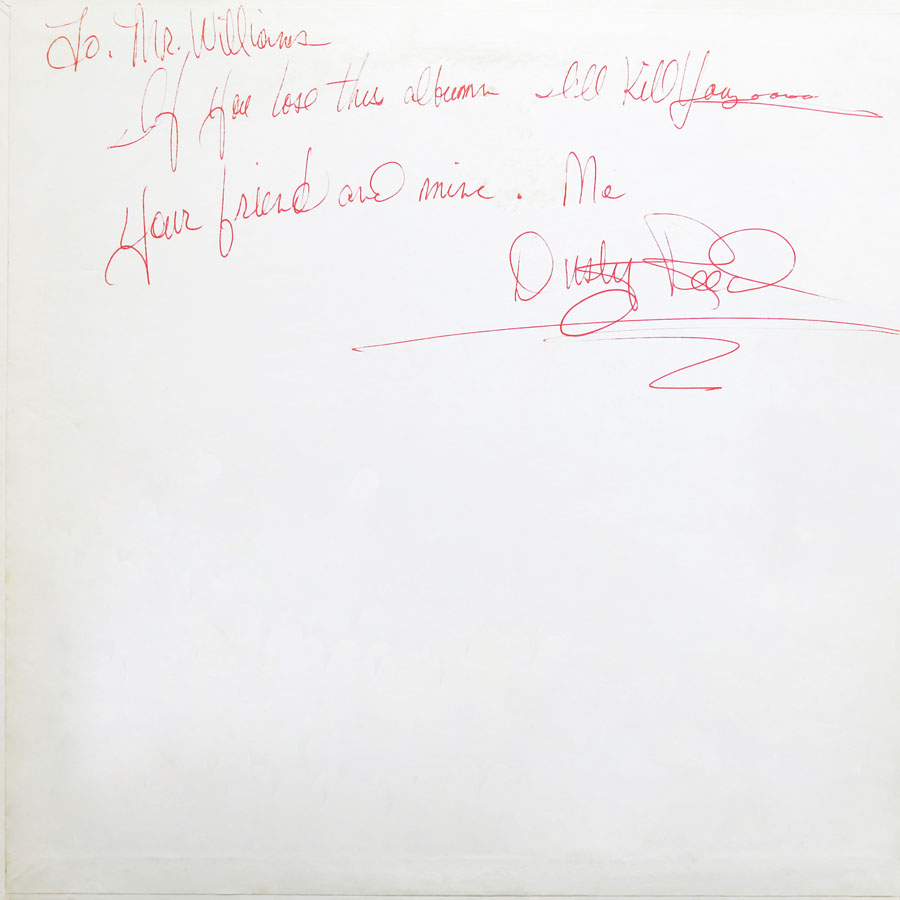 To. Mr. Williams
If you lose this album I'll Kill You
Your friend and mine. Me
Dusty Reed